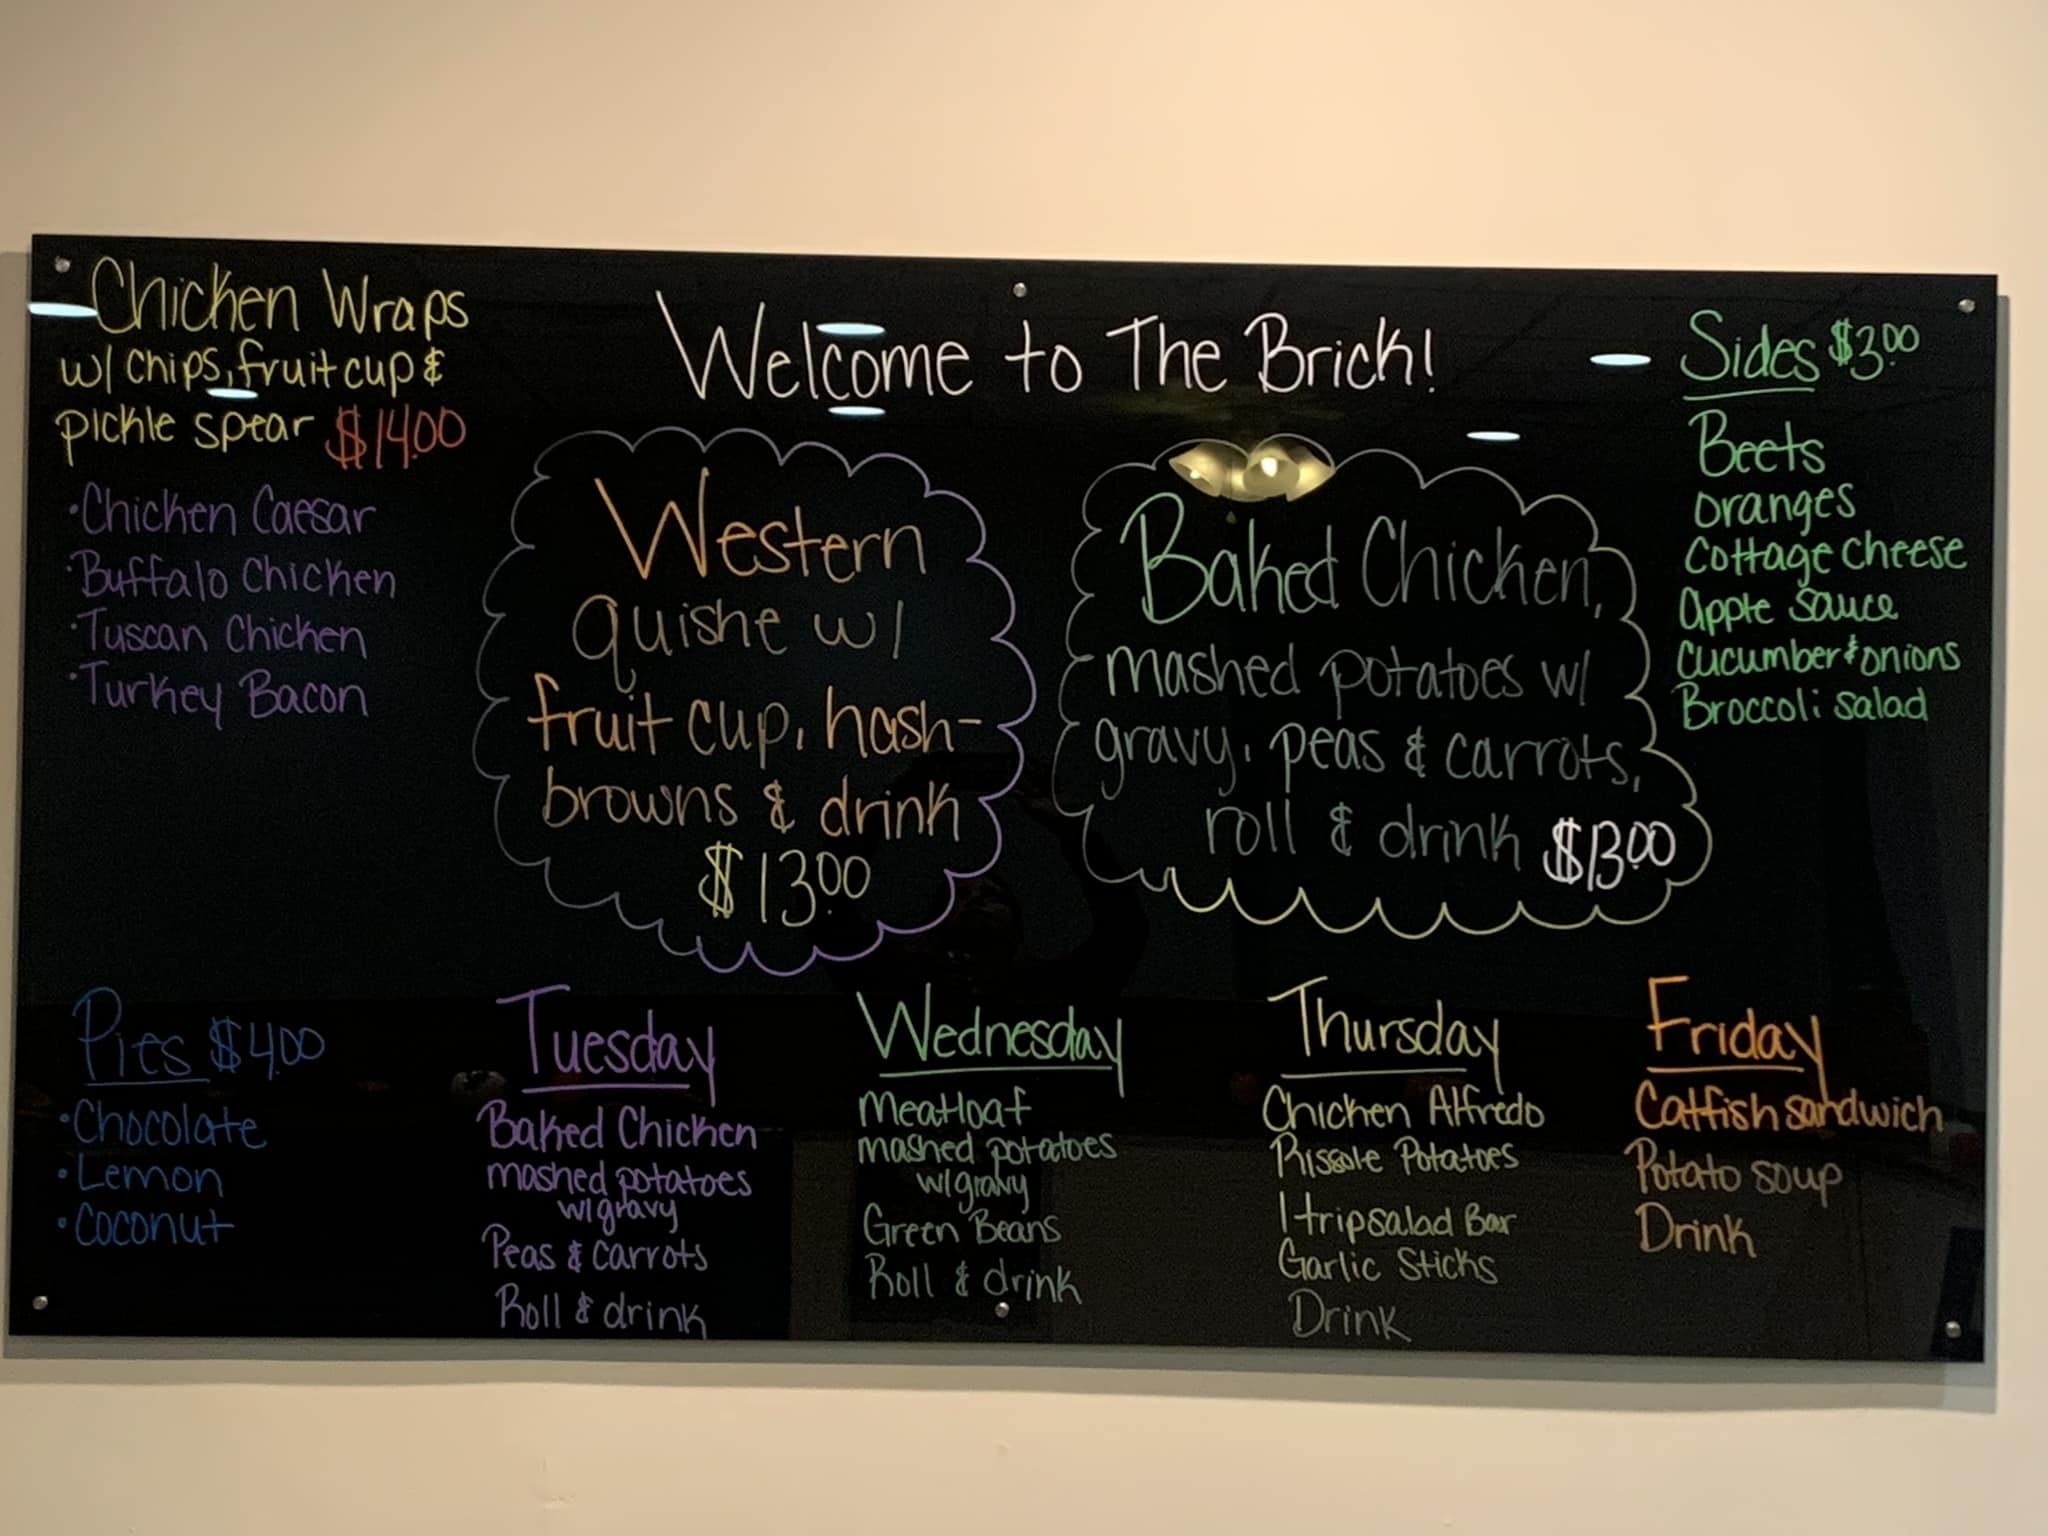 Welcome to The Brick!
Chicken Wraps
w/ chips, fruit cup &
pickle spear $14.00
• Chicken Caesar
• Buffalo Chicken
• Tuscan Chicken
• Turkey Bacon
Western
quishe w/
fruit cup, hash-
browns & drink
$13.00
Baked Chicken,
mashed potatoes w/
gravy, peas & carrots,
roll & drink $13.00
Sides $3.00
Beets
oranges
Cottage cheese
apple sauce
cucumber & onions
Broccoli salad
Pies $4.00
• Chocolate
• Lemon
• Coconut
Tuesday
Baked Chicken
mashed potatoes
w/gravy
Peas & carrots
Roll & drink
Wednesday
Meatloaf
mashed potatoes
w/gravy
Green Beans
Roll & drink
Thursday
Chicken Alfredo
Rissole Potatoes
1 trip salad Bar
Garlic Sticks
Drink
Friday
Catfish sandwich
Potato soup
Drink